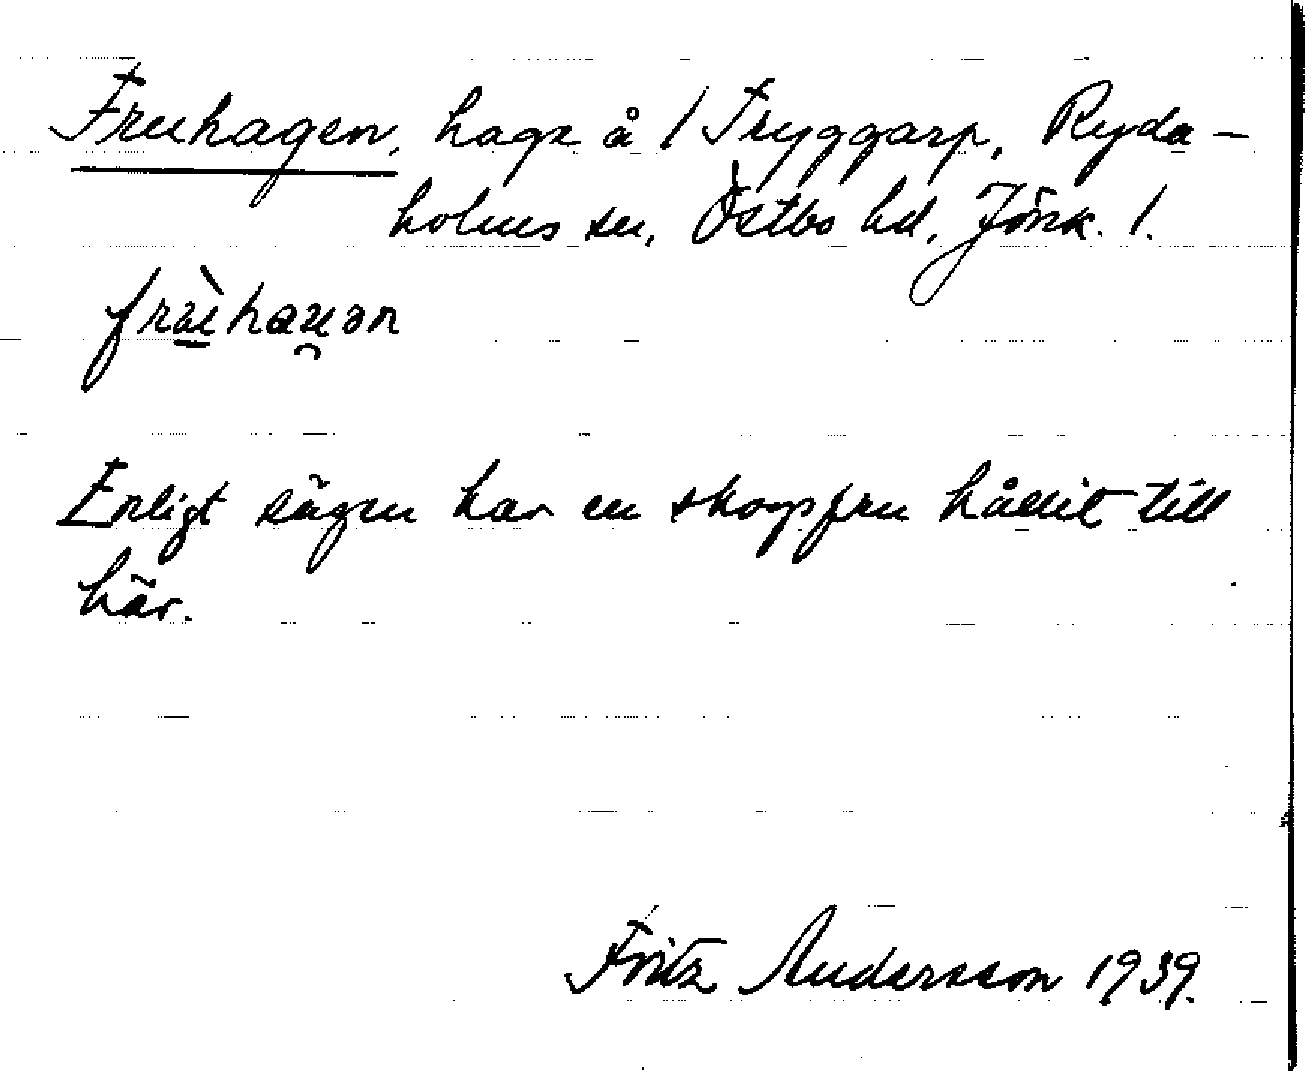 Fruhagen, hage å 1 Tryggarp, Ryda-
holms sn, Östbo hd, Jönk. l.
Enligt sägen har en skogsfru hållit till
här.
Fritz Andersson 1939.